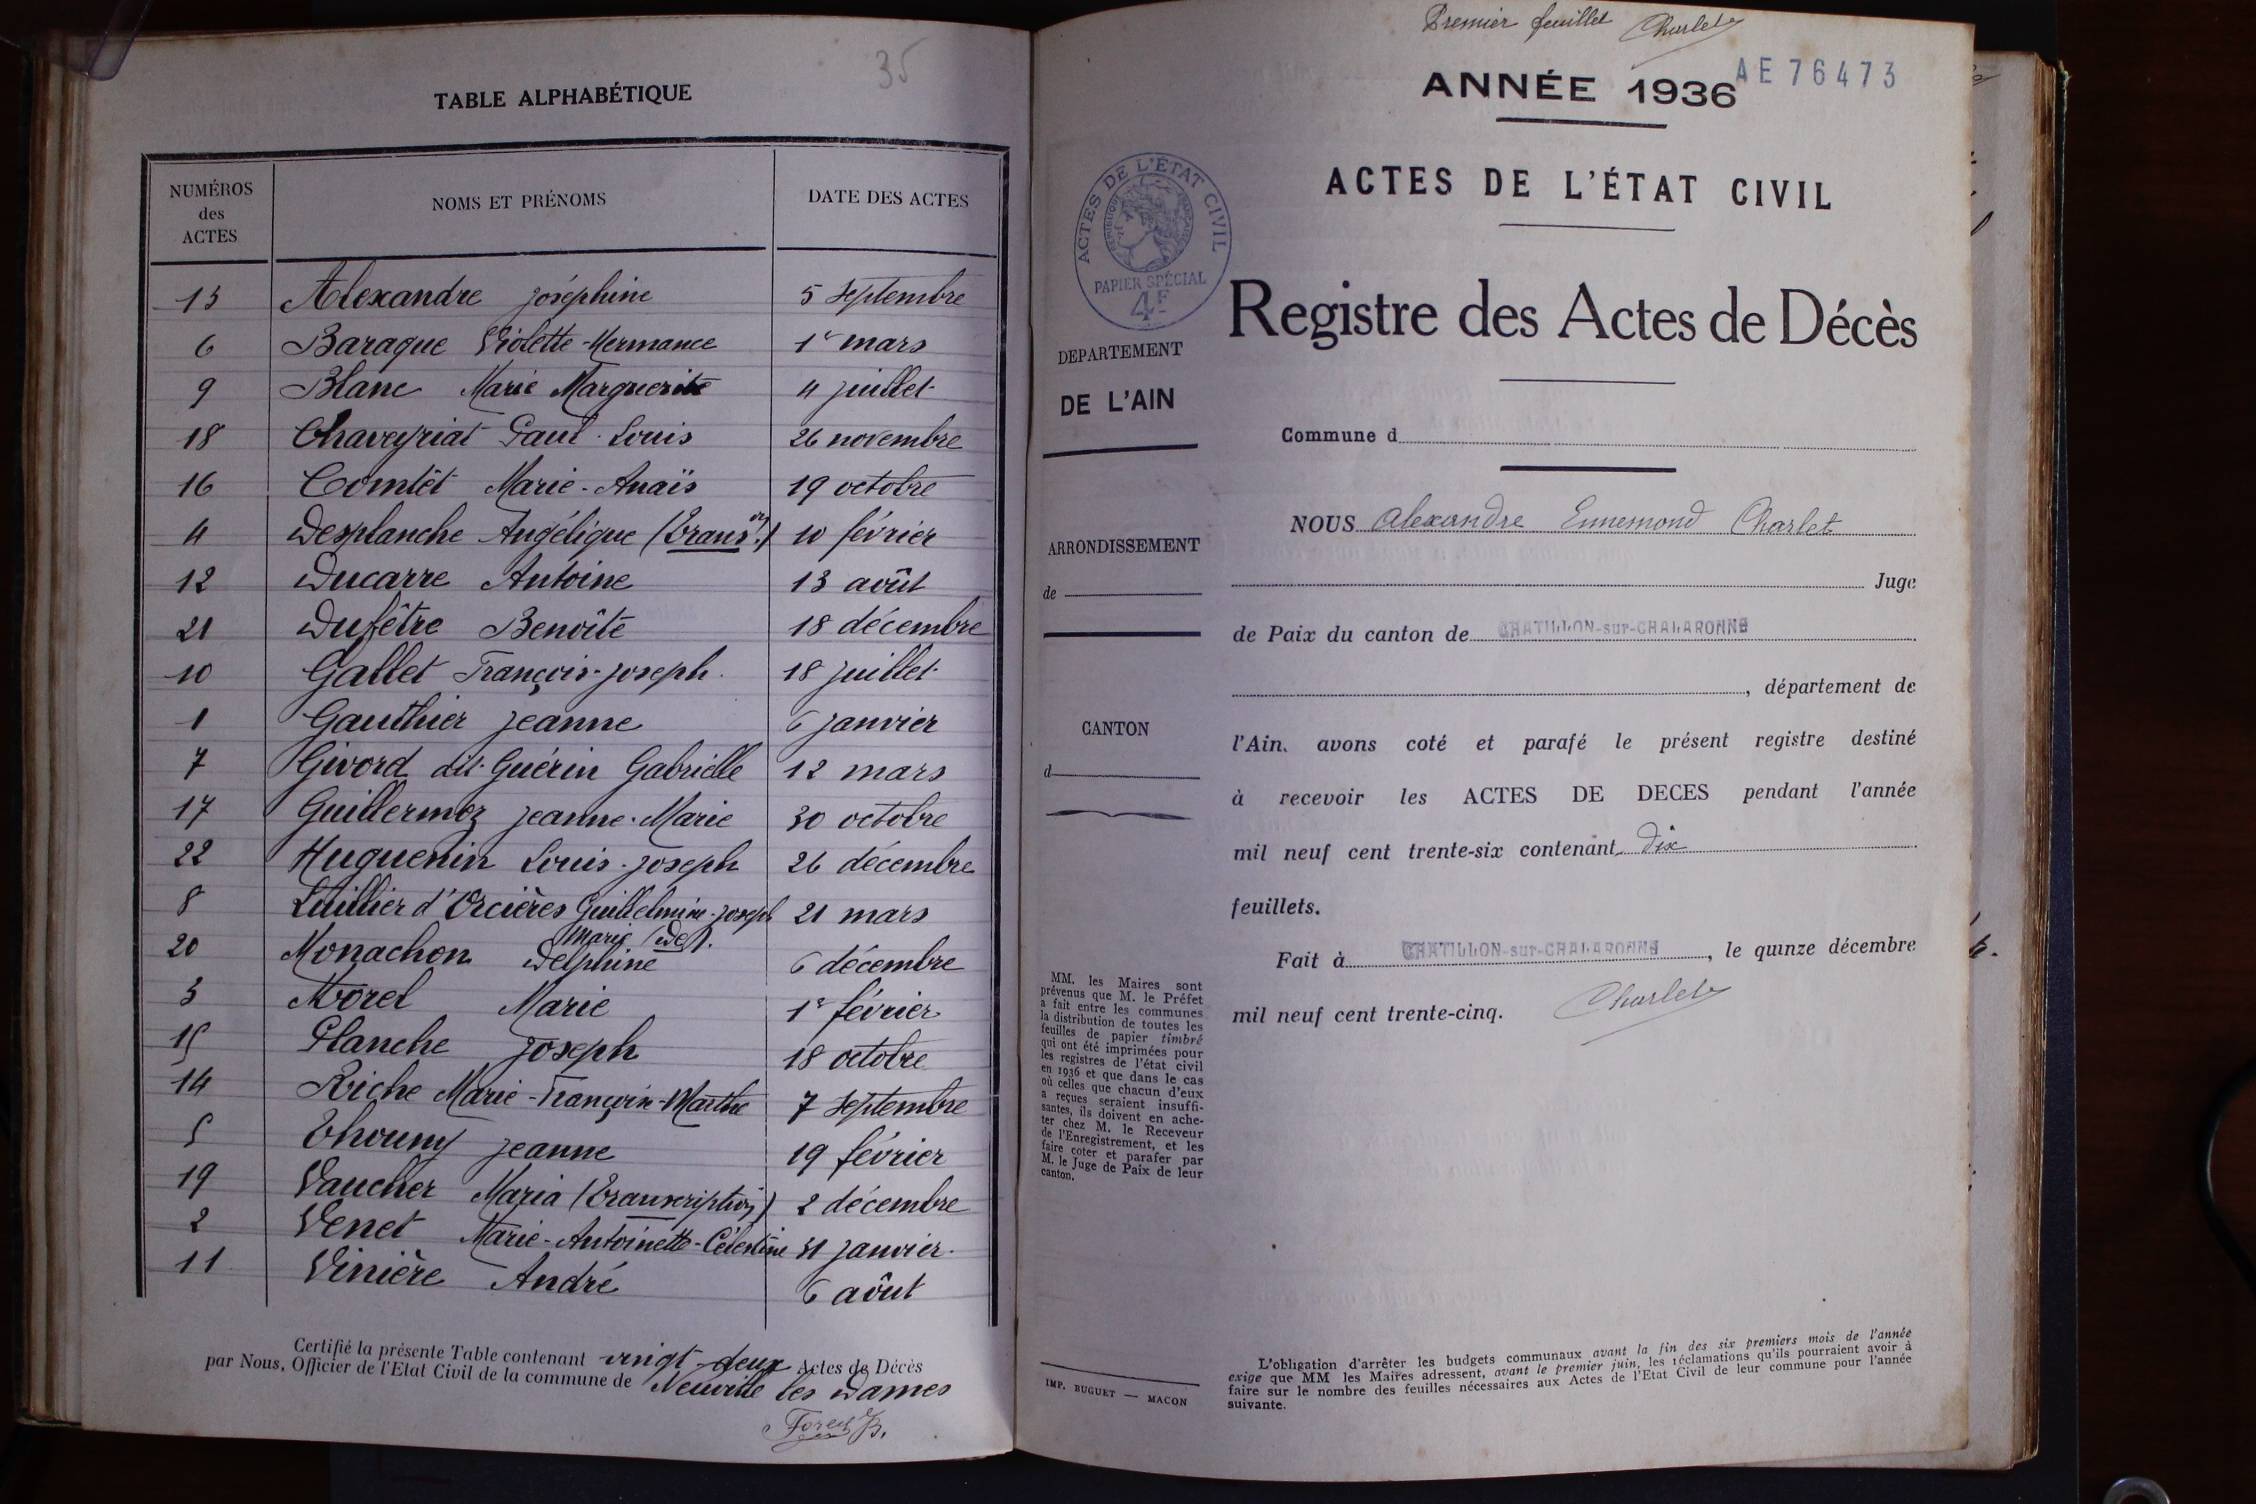 35
TABLE ALPHABÉTIQUE
NUMÉROS
des
ACTES
NOMS ET PRÉNOMS
DATE DES ACTES
13 Alexandre Joséphine 5 Septembre
6 Baraque Violette-Hermance 1er mars
9 Blanc Marie Marguerite 4 juillet
18 Chaveyriat Paul-Louis 26 novembre
16 Comtet Marie-Anaïs 19 octobre
4 Desplanche Angélique (Transon) 10 février
12 Ducarre Antoine 13 août
21 Dufêtre Benoîte 18 décembre
10 Gallet François-Joseph 18 juillet
1 Gauthier Jeanne 6 janvier
7 Givord dit Guérin Gabrielle 12 mars
17 Guillermoz Jeanne-Marie 30 octobre
22 Huguenin Louis-Joseph 26 décembre
8 Luillier d'Orcières Guillelmine-Joseph 21 mars
Marie (De).
20 Monachon Delphine 6 décembre
3 Morel Marie 1er février
15 Planche Joseph 18 octobre
14 Riche Marie-Françoise-Marthe 7 Septembre
5 Thoumy Jeanne 19 février
19 Vaucher Maria (Transcription) 2 décembre
2 Venet Marie-Antoinette-Célestine 31 janvier
11 Vinière André 6 août
Certifié la présente Table contenant vingt-deux Actes de Décès
par Nous, Officier de l'Etat Civil de la commune de Neuville les Dames
Premier feuillet Charlet
ANNÉE 1936
AE 76473
ACTES DE L'ÉTAT CIVIL
ACTES DE L'ÉTAT CIVIL
RÉPUBLIQUE FRANÇAISE
PAPIER SPÉCIAL
4F
Registre des Actes de Décès
DEPARTEMENT
DE L'AIN
Commune d
NOUS Alexandre Ennemond Charlet
ARRONDISSEMENT
de
Juge
de Paix du canton de CHATILLON-sur-CHALARONNE
, département de
CANTON
d
l'Ain, avons coté et parafé le présent registre destiné
à recevoir les ACTES DE DECES pendant l'année
mil neuf cent trente-six contenant dix
feuillets.
Fait à CHATILLON-sur-CHALARONNE, le quinze décembre
mil neuf cent trente-cinq. Charlet
MM. les Maires sont
prévenus que M. le Préfet
a fait entre les communes
la distribution de toutes les
feuilles de papier timbré
qui ont été imprimées pour
les registres de l'état civil
en 1936 et que dans le cas
où celles que chacun d'eux
a reçues seraient insuffi-
santes, ils doivent en ache-
ter chez M. le Receveur
de l'Enregistrement, et les
faire coter et parafer par
M. le Juge de Paix de leur
canton.
IMP. BUGUET — MACON
L'obligation d'arrêter les budgets communaux avant la fin des six premiers mois de l'année
exige que MM les Maires adressent, avant le premier juin, les réclamations qu'ils pourraient avoir à
faire sur le nombre des feuilles nécessaires aux Actes de l'Etat Civil de leur commune pour l'année
suivante.